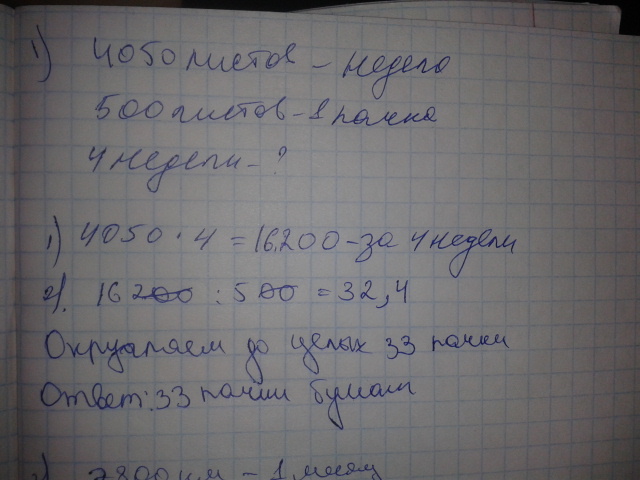 1) 4050 листов – неделю
500 листов – 1 пачка
4 недели – ?
1) 4050 · 4 = 16200 – за 4 недели
2) 16200 : 500 = 32,4
Округляем до целых 33 пачки
Ответ: 33 пачки бумаги
2) 7800 км – 1 месяц